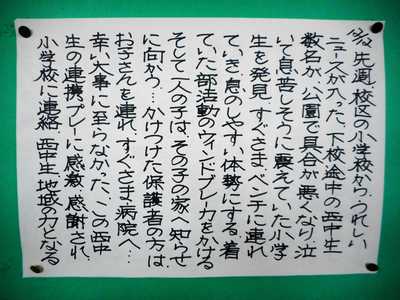 先週、校区の小学校から、うれしい
ニュースが入った。下校途中の西中生
数名が、公園で具合が悪くなり、泣
いて息苦しそうに震えていた小学
生を発見、すぐさまベンチに連れ
ていき、息のしやすい体勢にする。着
ていた部活動のウィンドブレーカをかける
そして一人の子は、その子の家へ知らせ
に向かう…かけつけた保護者の方は
お子さんを連れ、すぐさま病院へ…
幸い大事に至らなかった。この西中
生の連携プレーに感激、感謝され、
小学校に連絡。西中生、地域の力となる